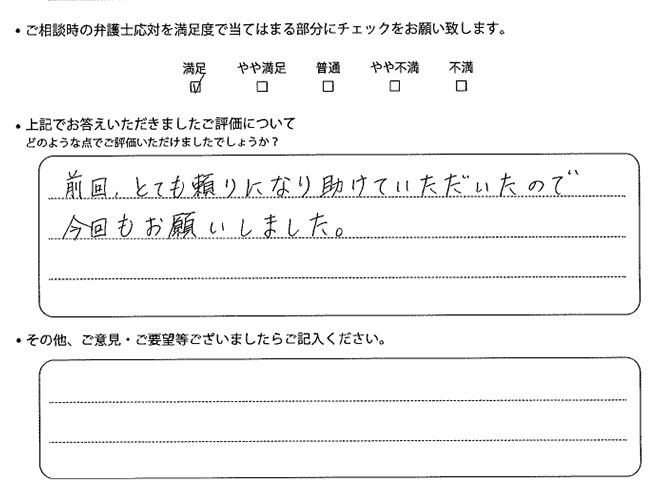 ・ご相談時の弁護士応対を満足度で当てはまる部分にチェックをお願い致します。
満足 やや満足 普通 やや不満 不満
・上記でお答えいただきましたご評価について
どのような点でご評価いただけましたでしょうか？
前回、とても頼りになり助けていただいたので
今回もお願いしました。
・その他、ご意見・ご要望等ございましたらご記入ください。